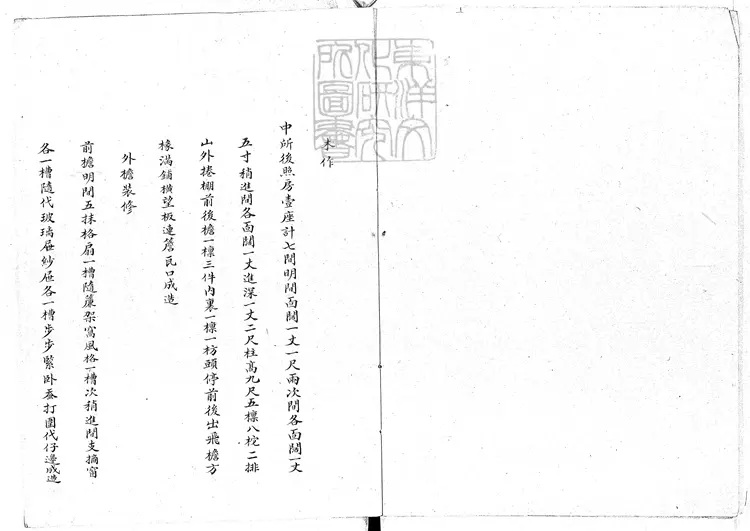 東洋文
化研究
所圖書
木作
中所後照房壹座計七間明間面闊一丈一尺兩次間各面闊一丈
五寸稍進間各面闊一丈進深一丈二尺柱高九尺五檁八椀二排
山外捲棚前後檐一檁三件內裏一檁一枋頭停前後出飛檐方
椽滿鋪橫望板連簷瓦口成造
外檐裝修
前檐明間五抹格扇一槽隨簾架窩風格一槽次稍進間支摘窗
各一槽隨代玻璃屜紗屜各一槽步步緊卧蚕打圍代仔邊成造